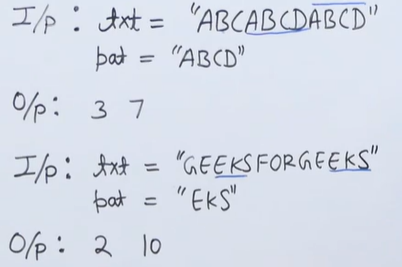 I/p : txt = "ABCABCDABCD"
pat = "ABCD"
O/p : 3 7
I/p : txt = "GEEKSFORGEEKS"
pat = "EKS"
O/p : 2 10